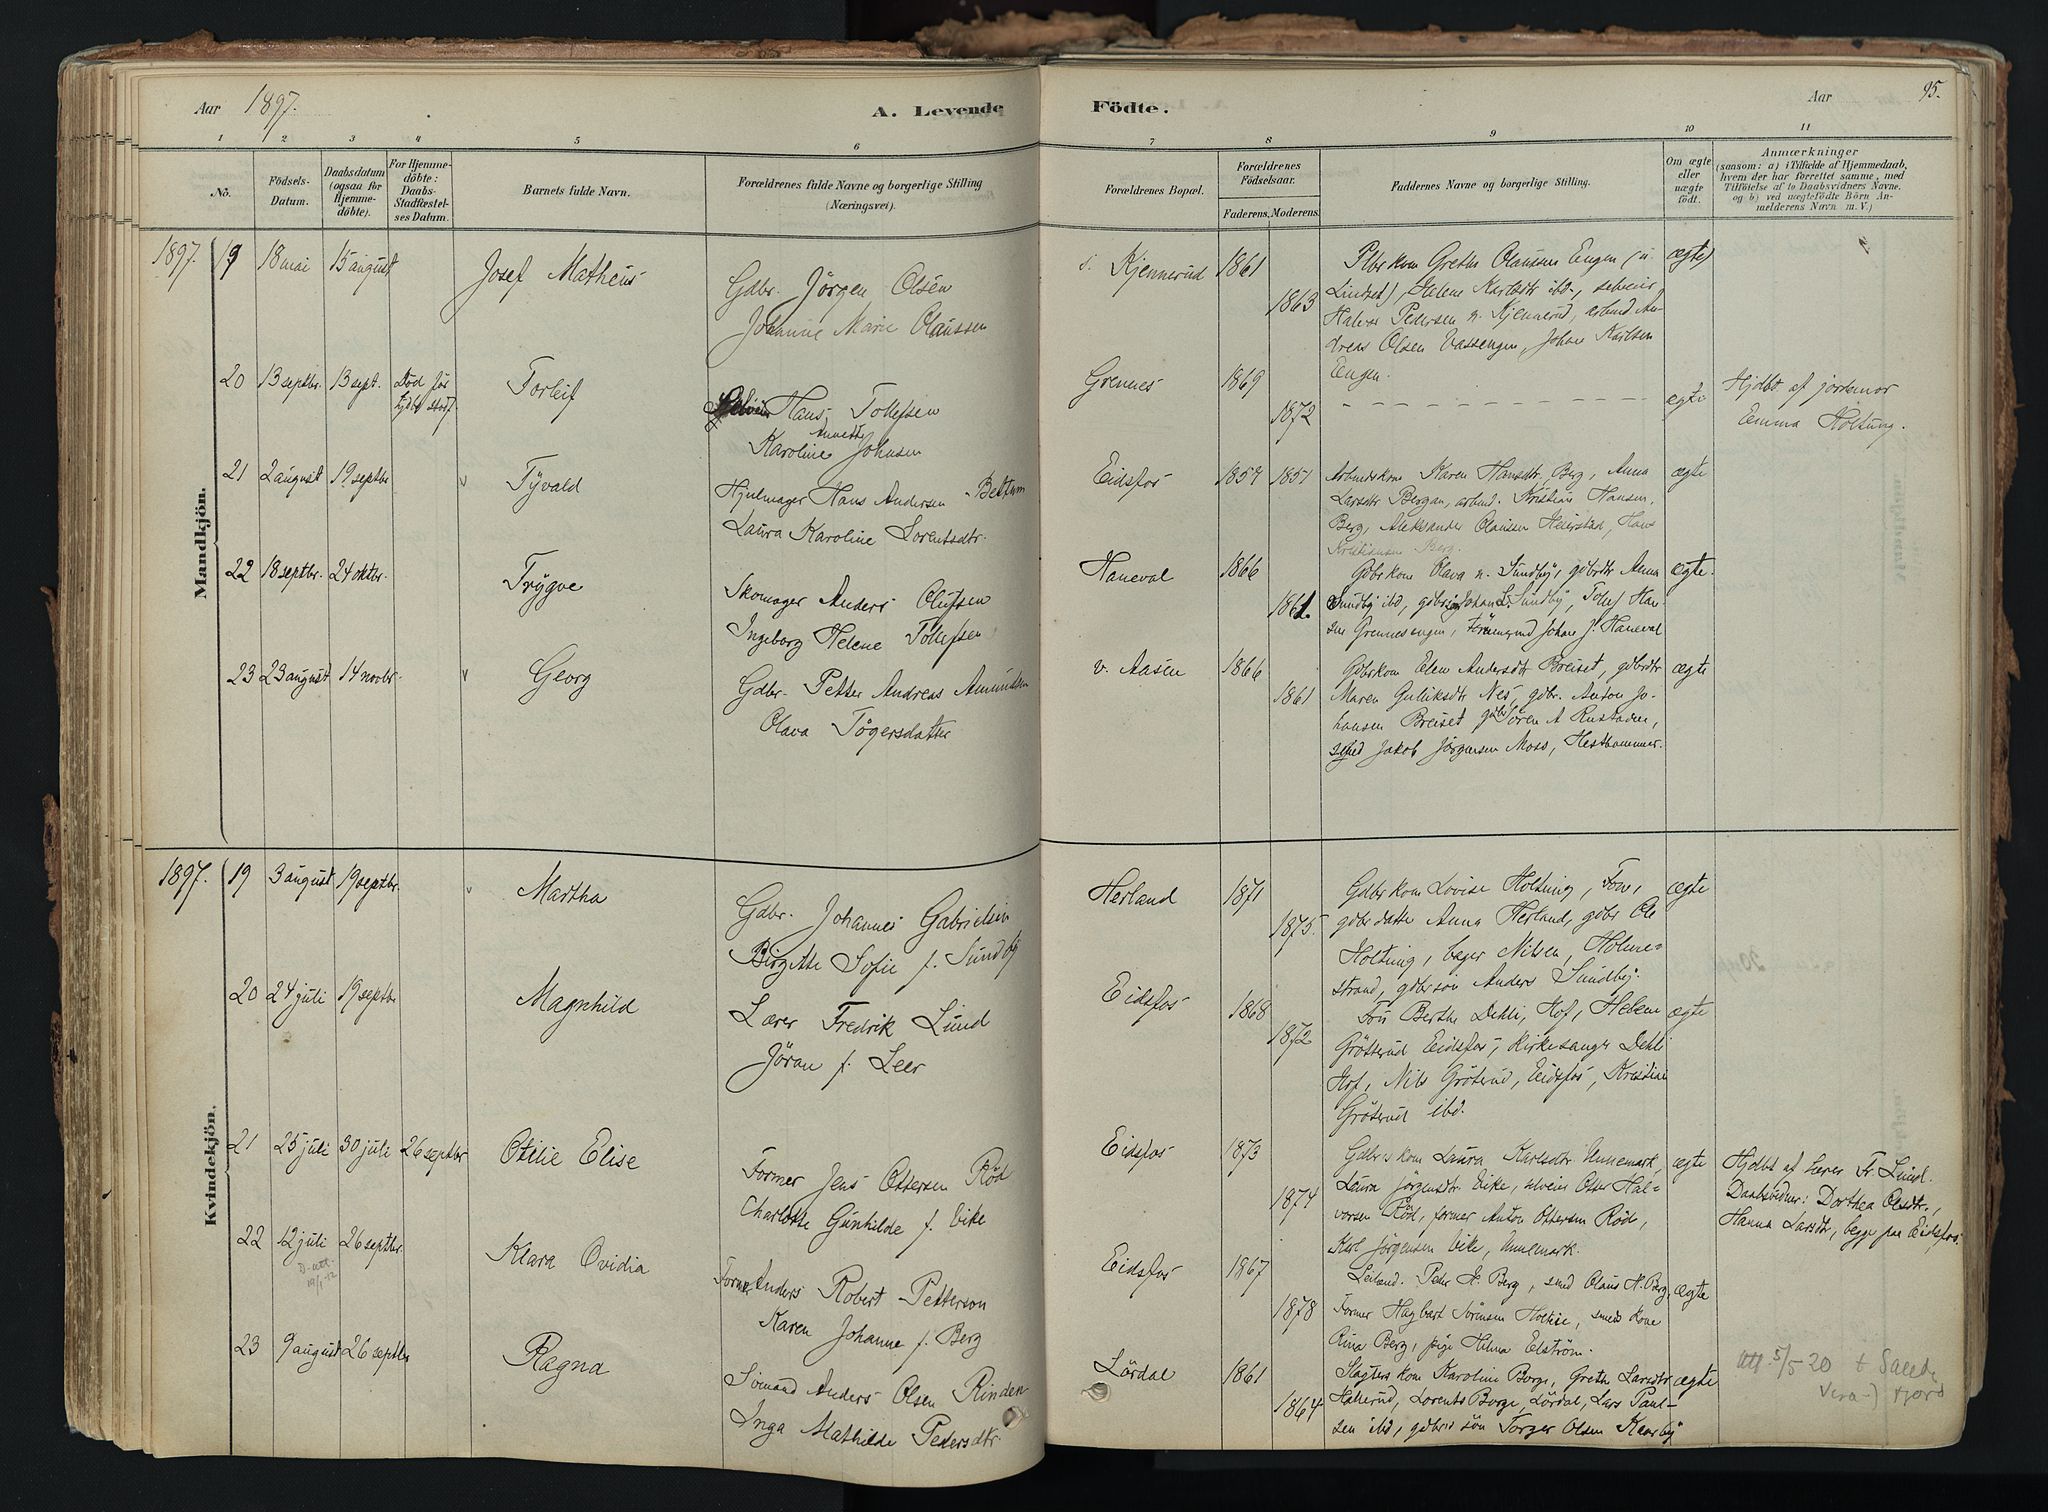 Aar 1897.
A. Levende
Födte.
Aar
95.
1 2 3 4 5 6 7 8 9 10 11
No.
Födsels-
Datum.
Daabsdatum
(ogsaa for
Hjemme-
döbte).
For Hjemme-
döbte:
Daabs-
Stadfæstel-
ses Datum.
Barnets fulde Navn.
Forældrenes fulde Navne og borgerlige Stilling
(Næringsvei).
Forældrenes Bopæl.
Forældrenes
Födselsaar.
Faderens. Moderens.
Faddernes Navne og borgerlige Stilling.
Om ægte
eller
uægte
født.
Anmærkninger
(saasom: a) i Tilfælde af Hjemmedaab,
hvem der har forrettet samme, med
Tilföielse af to Daabsvidners Navne.
og b) ved uægtefödte Börn An-
melderens Navn m. V.)
Mandkjön.
1897. 19 18 mai 15 august
Josef Matheus
Gdbr. Jörgen Olsen
Johanne Marie Olaussen
s. Kjennerud 1861
1863
Plbrkom Grethe Olaussen Engen (u.
Lindset), Helene Karlsdtr ibd., selveier
Halvor Pedersen n. Kjennerud, arbmd An-
dreas Olsen Vassengen, Johan Karlsen
Engen.
ægte
20 13 septbr. 13 sept. Död för
hjdbt stadf
Torleif
Hans Tollefsen
Karoline Annette Johnsen
Grennes 1869
1872
ægte
Hjdbt af jordemor
Emma Holtung.
21 2 august 19 septbr
v Tyvald
Hjulmager Hans Andersen - Bettum
Laura Karoline Lorentsdtr.
Eidsfos 1857 1851
Arbeidskom Karen Hansdtr. Berg, Anna
Larsdtr Bergan, arbmd. Kristian Hansen,
Berg, Aleksander Olaussen Heierstad, Hans
Kristiansen Berg.
ægte
22 18 septbr. 24 oktbr.
Trygve
Skomager Anders Olufsen
Ingeborg Helene Tollefsen
Haneval 1866
1861.
Gdbrkom Olava n. Sundby, gdbrdtr Anna
Sundby ibd, gdbrsøn Johan L. Sundby, Tolef Han-
sen Grennesengen, Tømmermd Johan J. Haneval
ægte.
23 23 august 14 novbr.
v Georg
Gdbr. Petter Andreas Amundsen
Olava Tögersdatter
v. Aasen 1866
1861
Gdbrkom Elen Andersdtr Breiset, gdbrdtr
Maren Guliksdtr Nes, gdbr. Anton Jo-
hansen Breiset gdbr Sören A Rustaden,
smed Jakob Jørgensen Moss, Hesthammer.
ægte
Kvindekjön.
1897. 19 3 august 19 septbr.
v Martha
Gdbr. Johannes Gabrielsen
Birgitte Sofie f. Sundby
Herland 1871
1875.
Gdbrkom Lovise Holtung, Fon,
gdbrdatte Anna Herland, gdbr Ole
Holtung, bager Nilsen, Holme-
strand, gdbrsön Anders Sundby.
ægte
20 24 juli 19 septbr
Magnhild
Lærer Fredrik Lund
Jöran f. Leer
Eidsfos 1868
1872
Fru Berthe Dehli, Hof, Helene
Grötterud Eidsfos, Kirkesanger Dehli
Hof, Nils Gröterud, Eidsfos, Kristian
Gröterud ibd.
ægte
21 25 juli 30 juli 26 septbr
Otilie Elise
Former Jens Ottersen Röd
Charlotte Gunhilde f. Vike
Eidsfos 1873
1874
Gdbrs kom Laura Karlsdtr Unnemark,
Laura Jörgensdtr. Vike, selveier Otter Hal-
vorsen Röd, former Anton Ottersen Röd,
Karl Jörgensen Vike, Unnemark.
ægte
Hjdbt af Lærer Fr. Lund.
Daabsvidner: Dorthea Olsdtr.,
Hanna Larsdtr, begge paa Eidsfos.
22 12 juli 26 septbr.
D-att.
19/1-12
Klara Ovidia
Former Anders Robert Petterson
Karen Johanne f. Berg
Eidsfos 1867
1878
Leiland. Peder H. Berg, smed Olaus H. Berg,
Former Hagbart Sörensen, smeds kone
Rina Berg, pige Helma Elström.
ægte
23 9 august 26 septbr
Ragna
Sömand Anders Olsen Rinden
Inga Mathilde Pedersdtr.
Lördal 1861
1864
Slagters kom Karoline Borge, Grethe Larsdtr
Hallerud, Lorents Borge, Lördal, Lars Paul-
sen ibd, gdbrs sön Torger Olsen Kaarby
ægte
Att. 5/5 20 t Sande
Vera-) fjord